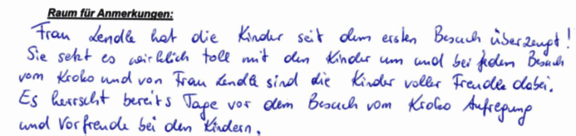 Raum für Anmerkungen:
Frau Lendle hat die Kinder seit dem ersten Besuch überzeugt!
Sie setzt es wirklich toll mit den Kinder um und bei jedem Besuch
vom Kroko und von Frau Lendle sind die Kinder voller Freude dabei.
Es herrscht bereits Tage vor dem Besuch vom Kroko Aufregung
und Vorfreude bei den Kindern.